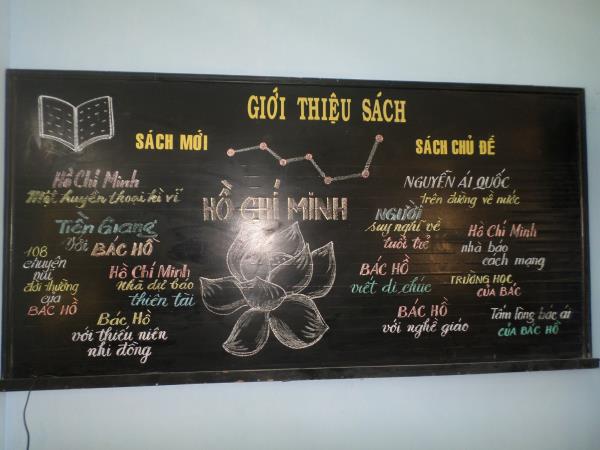 GIỚI THIỆU SÁCH
SÁCH MỚI
Hồ Chí Minh
Một huyền thoại kì vĩ
Tiền Giang
Với BÁC HỒ
108
chuyện
vui
đời thường
của
BÁC HỒ
Hồ Chí Minh
Nhà dự báo
thiên tài
Bác Hồ
với thiếu niên
nhi đồng
HỒ CHÍ MINH
SÁCH CHỦ ĐỀ
NGUYỄN ÁI QUỐC
trên đường về nước
NGƯỜI
suy nghĩ về
tuổi trẻ
Hồ Chí Minh
nhà báo
cách mạng
BÁC HỒ
viết di chúc
TRƯỜNG HỌC
CỦA BÁC
BÁC HỒ
với nghề giáo
Tấm lòng bác ái
CỦA BÁC HỒ